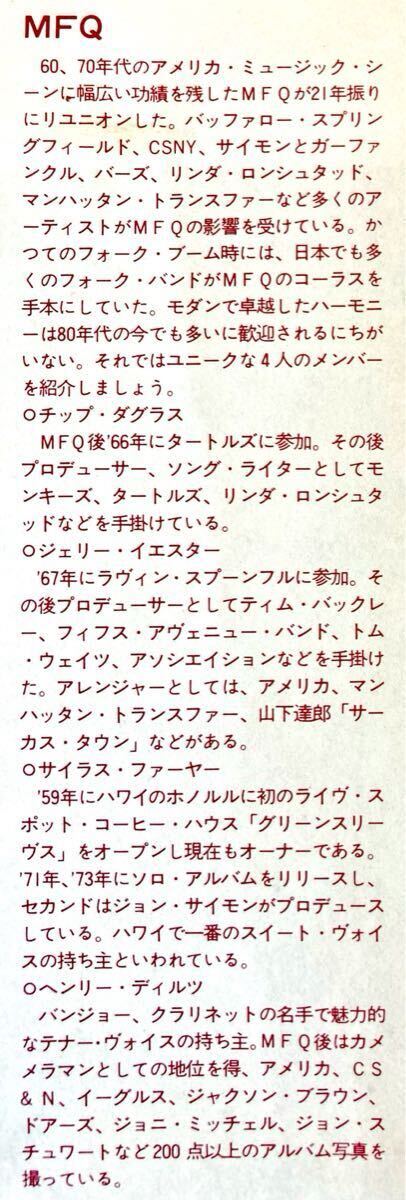 MFQ
60、70年代のアメリカ・ミュージック・シ
ーンに幅広い功績を残したMFQが21年振り
にリユニオンした。バッファロー・スプリン
グフィールド、CSNY、サイモンとガーファ
ンクル、バーズ、リンダ・ロンシュタッド、
マンハッタン・トランスファーなど多くのア
ーティストがMFQの影響を受けている。か
つてのフォーク・ブーム時には、日本でも多
くのフォーク・バンドがMFQのコーラスを
手本にしていた。モダンで卓越したハーモニ
ーは80年代の今でも多いに歓迎されるにちが
いない。それではユニークな4人のメンバー
を紹介しましょう。
○チップ・ダグラス
MFQ後'66年にタートルズに参加。その後
プロデューサー、ソング・ライターとしてモ
ンキーズ、タートルズ、リンダ・ロンシュタ
ッドなどを手掛けている。
○ジェリー・イエスター
'67年にラヴィン・スプーンフルに参加。そ
の後プロデューサーとしてティム・バックレ
ー、フィフス・アヴェニュー・バンド、トム
・ウェイツ、アソシエイションなどを手掛け
た。アレンジャーとしては、アメリカ、マン
ハッタン・トランスファー、山下達郎「サー
カス・タウン」などがある。
○サイラス・ファーヤー
'59年にハワイのホノルルに初のライヴ・ス
ポット・コーヒー・ハウス「グリーンスリー
ヴス」をオープンし現在もオーナーである。
'71年、'73年にソロ・アルバムをリリースし、
セカンドはジョン・サイモンがプロデュース
している。ハワイで一番のスイート・ヴォイ
スの持ち主といわれている。
○ヘンリー・ディルツ
バンジョー、クラリネットの名手で魅力的
なテナー・ヴォイスの持ち主。MFQ後はカメ
メラマンとしての地位を得、アメリカ、CS
&N、イーグルス、ジャクソン・ブラウン、
ドアーズ、ジョニ・ミッチェル、ジョン・ス
チュワートなど200点以上のアルバム写真を
撮っている。